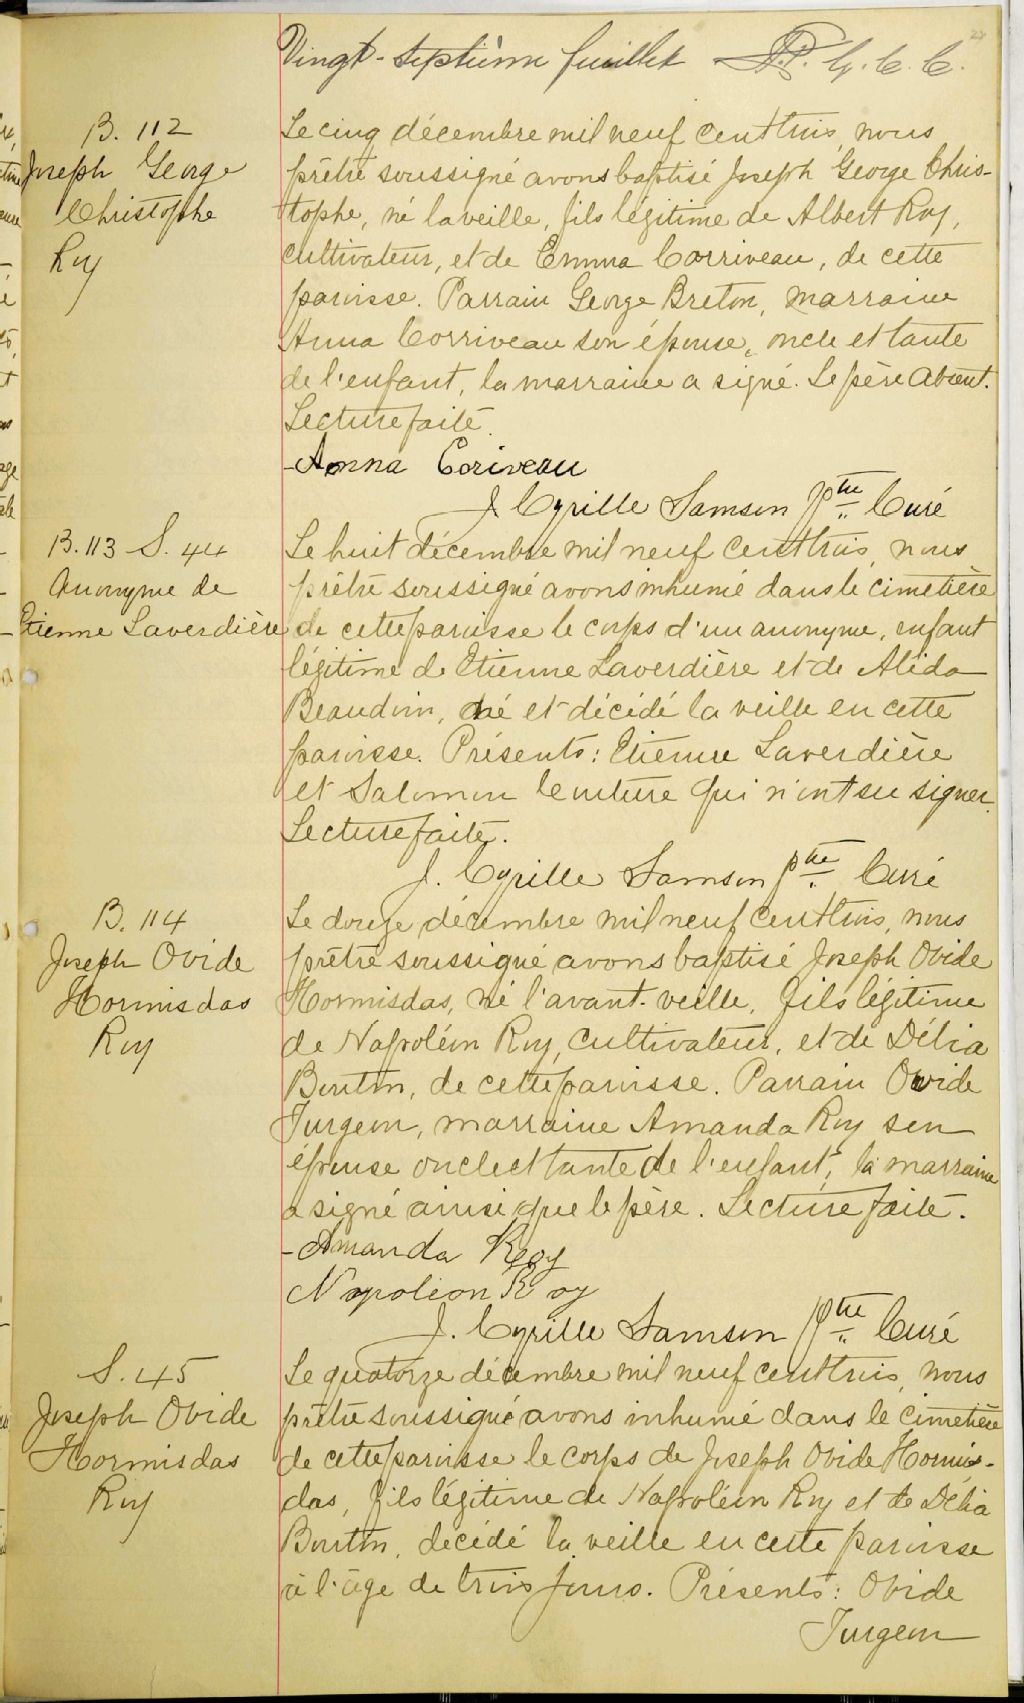 Vingt-septième feuillet
B. 112
Joseph George
Christophe
Roy
Le cinq décembre mil neuf cent trois, nous
prêtre soussigné avons baptisé Joseph George Chris-
tophe, né la veille, fils légitime de Albert Roy,
cultivateur, et de Emma Corriveau, de cette
paroisse. Parrain George Breton, marraine
Anna Corriveau son épouse, oncle et tante
de l'enfant, la marraine a signé. Le père absent.
Lecture faite.
-Anna Coriveau
J. Cyrille Samson Ptre Curé
B. 113 S. 44
Anonyme de
Etienne Laverdière
Le huit décembre mil neuf cent trois, nous
prêtre soussigné avons inhumé dans le cimetière
de cette paroisse le corps d'un anonyme, enfant
légitime de Etienne Laverdière et de Alida
Beaudoin, né et décédé la veille en cette
paroisse. Présents: Etienne Laverdière
et Salomon Couture qui n'ont su signer.
Lecture faite.
J. Cyrille Samson ptre Curé
B. 114
Joseph Ovide
Hormisdas
Roy
Le douze décembre mil neuf cent trois, nous
prêtre soussigné avons baptisé Joseph Ovide
Hormisdas, né l'avant-veille, fils légitime
de Napoléon Roy, cultivateur, et de Délia
Bouton, de cette paroisse. Parrain Ovide
Turgeon, marraine Amanda Roy son
épouse oncle et tante de l'enfant, la marraine
a signé ainsi que le père. Lecture faite.
-Amanda Roy
Napoleon Roy
J. Cyrille Samson Ptre Curé
S. 45
Joseph Ovide
Hormisdas
Roy
Le quatorze décembre mil neuf cent trois, nous
prêtre soussigné avons inhumé dans le cimetière
de cette paroisse le corps de Joseph Ovide Hormis-
das, fils légitime de Napoléon Roy et de Délia
Bouton, décédé la veille en cette paroisse
à l'âge de trois jours. Présents: Ovide
Turgeon